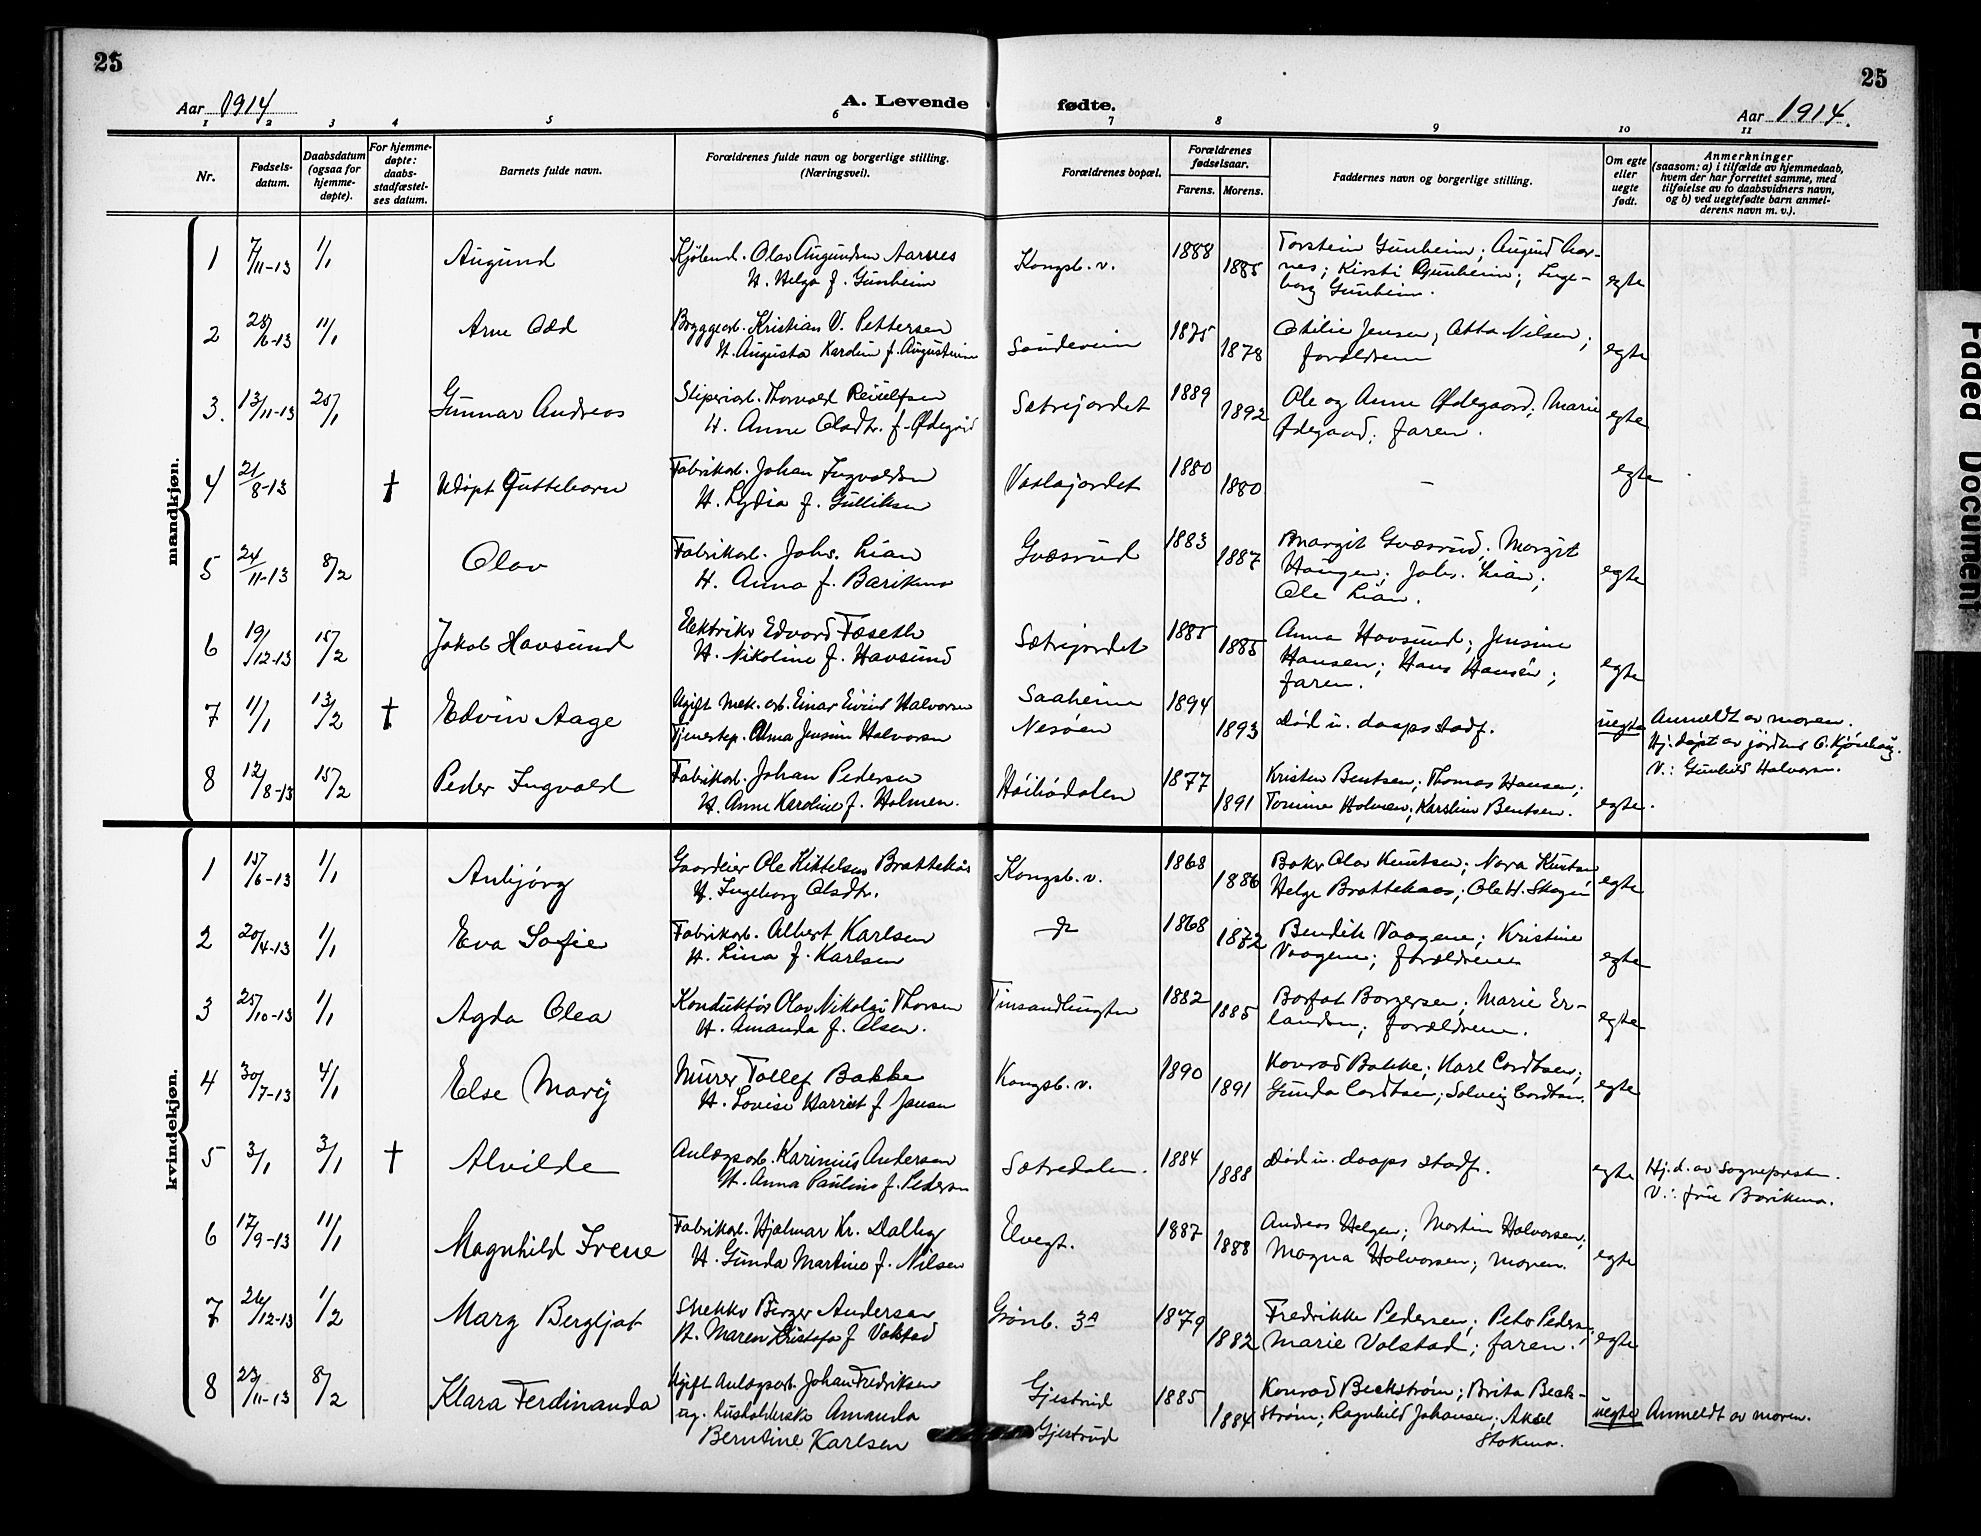 25
25
Aar 1914
A. Levende fødte.
Aar 1914.
1 2 3 4 5 6 7 8 9 10 11
Nr.
Fødsels-
datum.
Daabsdatum
(ogsaa for
hjemme-
døpte).
For hjemme-
døpte:
daabs-
stadfæstel-
ses datum.
Barnets fulde navn.
Forældrenes fulde navn og borgerlige stilling.
(Næringsvei).
Forældrenes bopæl.
Forældrenes
fødselsaar.
Farens. Morens.
Faddernes navn og borgerlige stilling.
Om egte
eller
uegte
født.
Anmerkninger
(saasom: a) i tilfælde av hjemmedaab,
hvem der har forrettet samme, med
tilføielse av to daabsvidners navn,
og b) ved uegtefødte barn anmel-
derens navn m. v.).
mandkjøn.
1 7/11-13 1/1 Augund
Kjøbmd. Olav Augundsen Aarnes
H. Helga f. Gunheim
Kongsb. v. 1888 1885
Torstein Gunheim; Augund Aar-
nes; Kirsti Gunheim; Inge-
borg Gunheim.
egte
2 28/6-13 11/1 Arne Odd
Bryggearb. Kristian V. Pettersen
H. Augusta Karoline f. Augustinin
1875 1878
Otilie Jensen; Otto Nilsen;
forældrene
egte
3. 13/11-13 25/1 Gunnar Andreas
Sliperiarb. Thorvald
H. Anne Olsdtr. f. Ødegård
Sætrejordet 1889 1892
Ole og Anne Ødegaard; Marie
Ødegaard; faren.
egte
4 21/8-13 † Udøpt Guttebarn
Fabrikarb. Johan Ingvaldsen
H. Lydia f. Gulliksen
Vaslajordet 1880 1880
–
egte
5 24/11-13 8/2 Olav
Fabrikarb. Johs. Lian
H. Anna f. Barikmo
Gvæsrud 1883 1887
Margit Gvæsrud; Margit
Haugen; Johs. Lian;
Ole Lian.
egte
6 19/12-13 15/2 Jakob Havsund
Elektriker Edvard Fæseth
H. Nikoline f. Havsund
Sætrejordet 1885 1885
Anna Havsund; Jensine
Hansen; Hans Hansen;
faren.
egte
7 1/1 13/2 † Edvin Aage
Ugift Mek. arb. Einar Eivind Halvorsen
Tjenestep. Alma Jensine Halvorsen
Saaheim
Nesøen
1894 1893
Død u. daaps stadf.
uegte
Anmeldt av moren.
Hj. døpt av jordmo G. Kjønhaug.
V.: Gunhild Halvorsen.
8 12/8-13 15/2 Peder Ingvald
Fabrikarb. Johan Pedersen
H. Anne Karoline f. Holmen.
Høibødalen 1877 1891
Kristen Bentsen; Thomas Hansen;
Tomine Holmen; Karoline Bentsen.
egte.
kvindekjøn.
1 15/6-13 1/1 Anbjørg
Gaardeier Ole Kittelsen Brattekås
H. Ingeborg Olsdtr.
Kongsb. v. 1868 1886
Baker Olav Knutsen; Nora Knutsen
Helge Brattekaas; Ole H. Skogen
egte
2 20/4-13 1/1 Eva Sofie
Fabrikarb. Albert Karlsen
H. Lina f. Karlsen
do 1868 1872
Bendik Vaagene; Kristine
Vaagene; forældrene
egte
3 25/10-13 1/1 Agda Olea
Konduktør Olav Nikolai Thorsen
H. Amanda f. Olsen.
1882 1885
Borfat Borgersen; Marie Er-
landsen; forældrene.
egte
4 30/7-13 4/1 Else Mary
Murer Tollef Bakke
H. Lovise Harriet f. Jansen
Kongsb. v. 1890 1891
Konrad Bakke; Karl Cordtsen;
Gunda Cordtsen; Solveig Cordtsen.
egte
5 3/1 3/1 † Alvilde
Anlægsarb. Karinius Andersen
H. Anna Pauline f. Pedersen
Sætredalen. 1884 1888
Død u. daaps stadf.
egte
Hj. d. av sogneprsten.
V.: frue Barikmo.
6 17/9-13 11/1 Magnhild Irene
Fabrikarb. Hjalmar Kr. Dalby
H. Gunda Martine f. Nilsen
Elvegt. 1887 1888
Andreas Helgen; Martin Halvorsen;
Magna Halvorsen; moren.
egte
7 26/12-13 1/2 Mary Bergljot
Snekker Birger Andersen
H. Maren Kristofa f. Volstad
Grønb. 3A 1879 1882
Fredrikke Pedersen; Peter Pedersen;
Marie Volstad; faren.
egte
8 23/11-13 8/2 Klara Ferdinanda
Ugift Anlægsarb. Johan Fredriksen
ug. husholderske Amanda
Berntine Karlsen
Gjestrud
Gjestrud
1885 1884
Konrad Beckstrøm; Brita Beck-
strøm; Ragnhild Johansen; Aksel
Stokmo.
uegte
Anmeldt av moren.
Faded Document